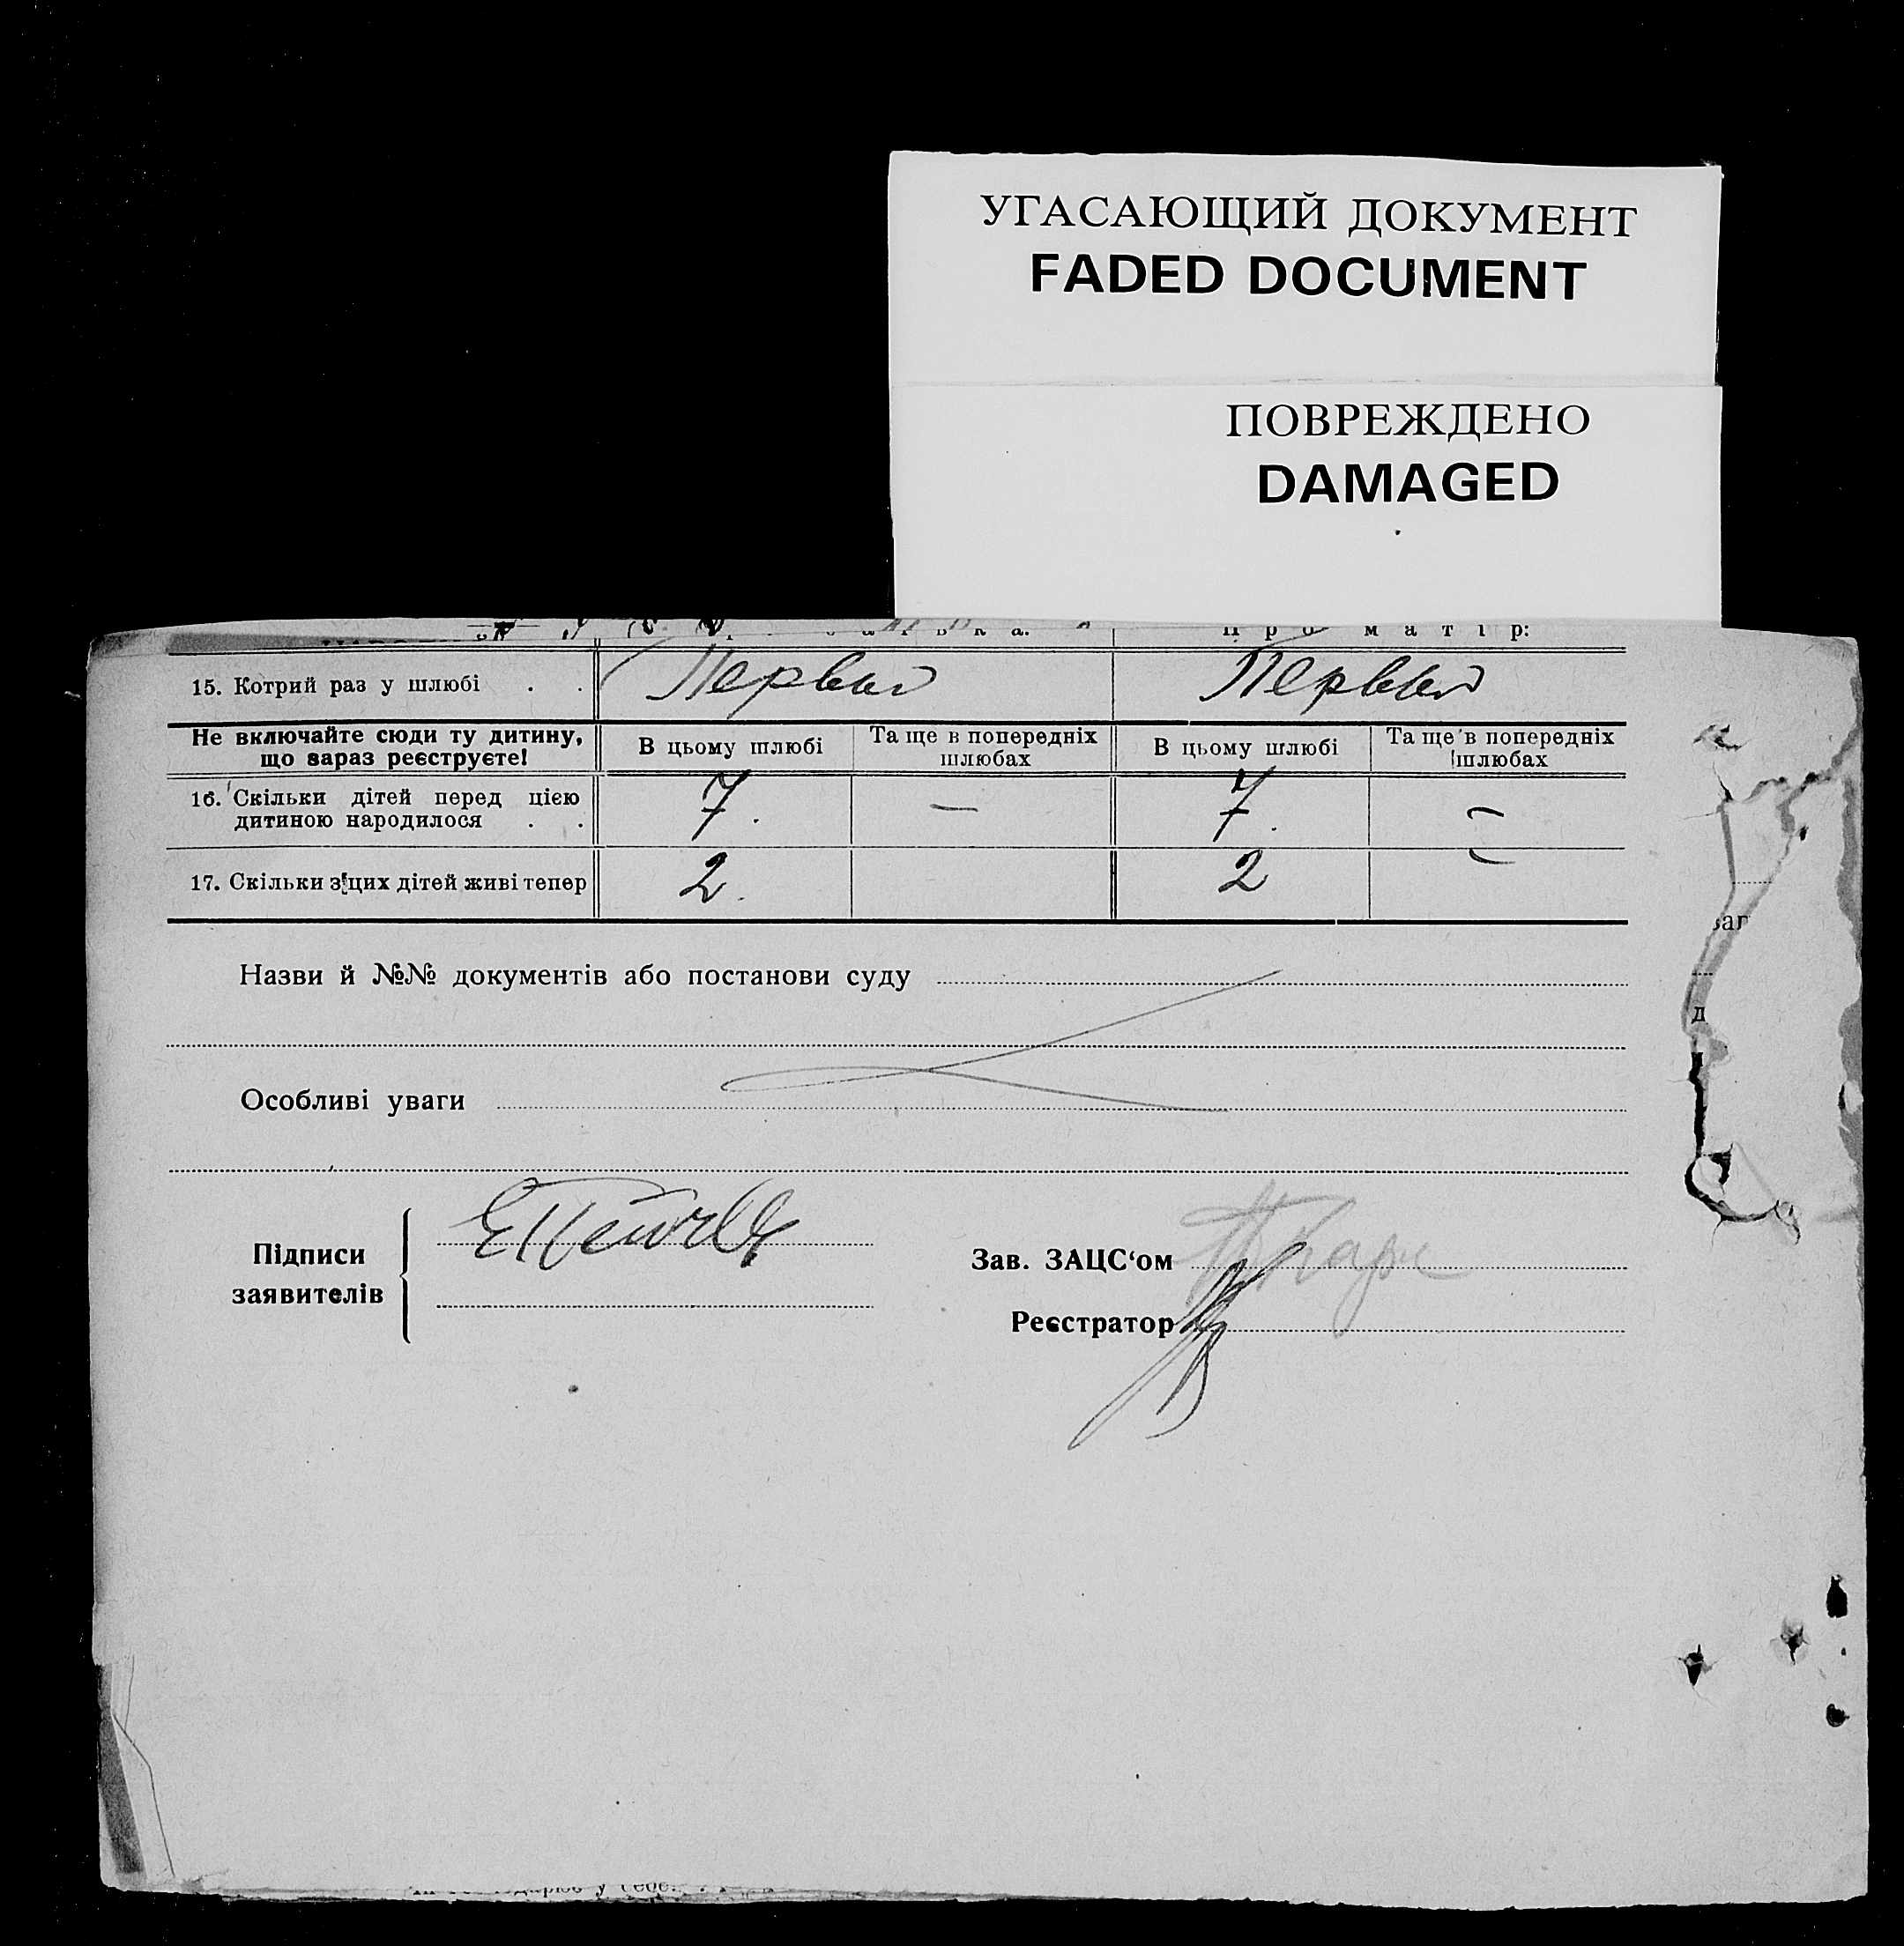 УГАСАЮЩИЙ ДОКУМЕНТ
FADED DOCUMENT
ПОВРЕЖДЕНО
DAMAGED
Про матір:
15. Котрий раз у шлюбі . . Первый Первый
Не включайте сюди ту дитину, що зараз реєструєте! В цьому шлюбі Та ще в попередніх шлюбах В цьому шлюбі Та ще в попередніх шлюбах
16. Скільки дітей перед цією
дитиною народилося . . 7. — 7. —
17. Скільки з цих дітей живі тепер 2. 2 —
Назви й №№ документів або постанови суду
Особливі уваги
Підписи
заявителів
Зав. ЗАЦС‘ом
Реєстратор